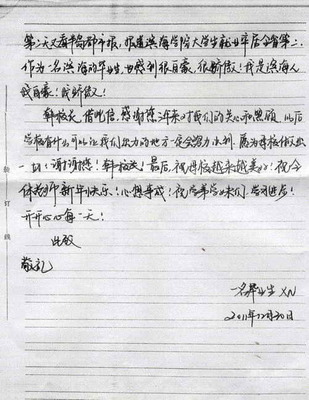 第二天又看半岛都市报，报道滨海学院大学生就业率居全省第二，
作为一名滨海的毕业生，由感到很自豪，很骄傲！我是滨海人
我自豪！我骄傲！
韩校长，借此信，感谢您近年来对我们的关心和照顾，以后
学校有什么可以让我们出力的地方一定会努力做到，愿为母校付出
一切！谢谢您！韩校长！最后，祝母校越来越美好！祝全
体老师新年快乐！心想事成！祝学弟学妹们，学习进步！
开开心心每一天！
此致
敬礼
一名毕业生 XN
2011年12月30日
装订线